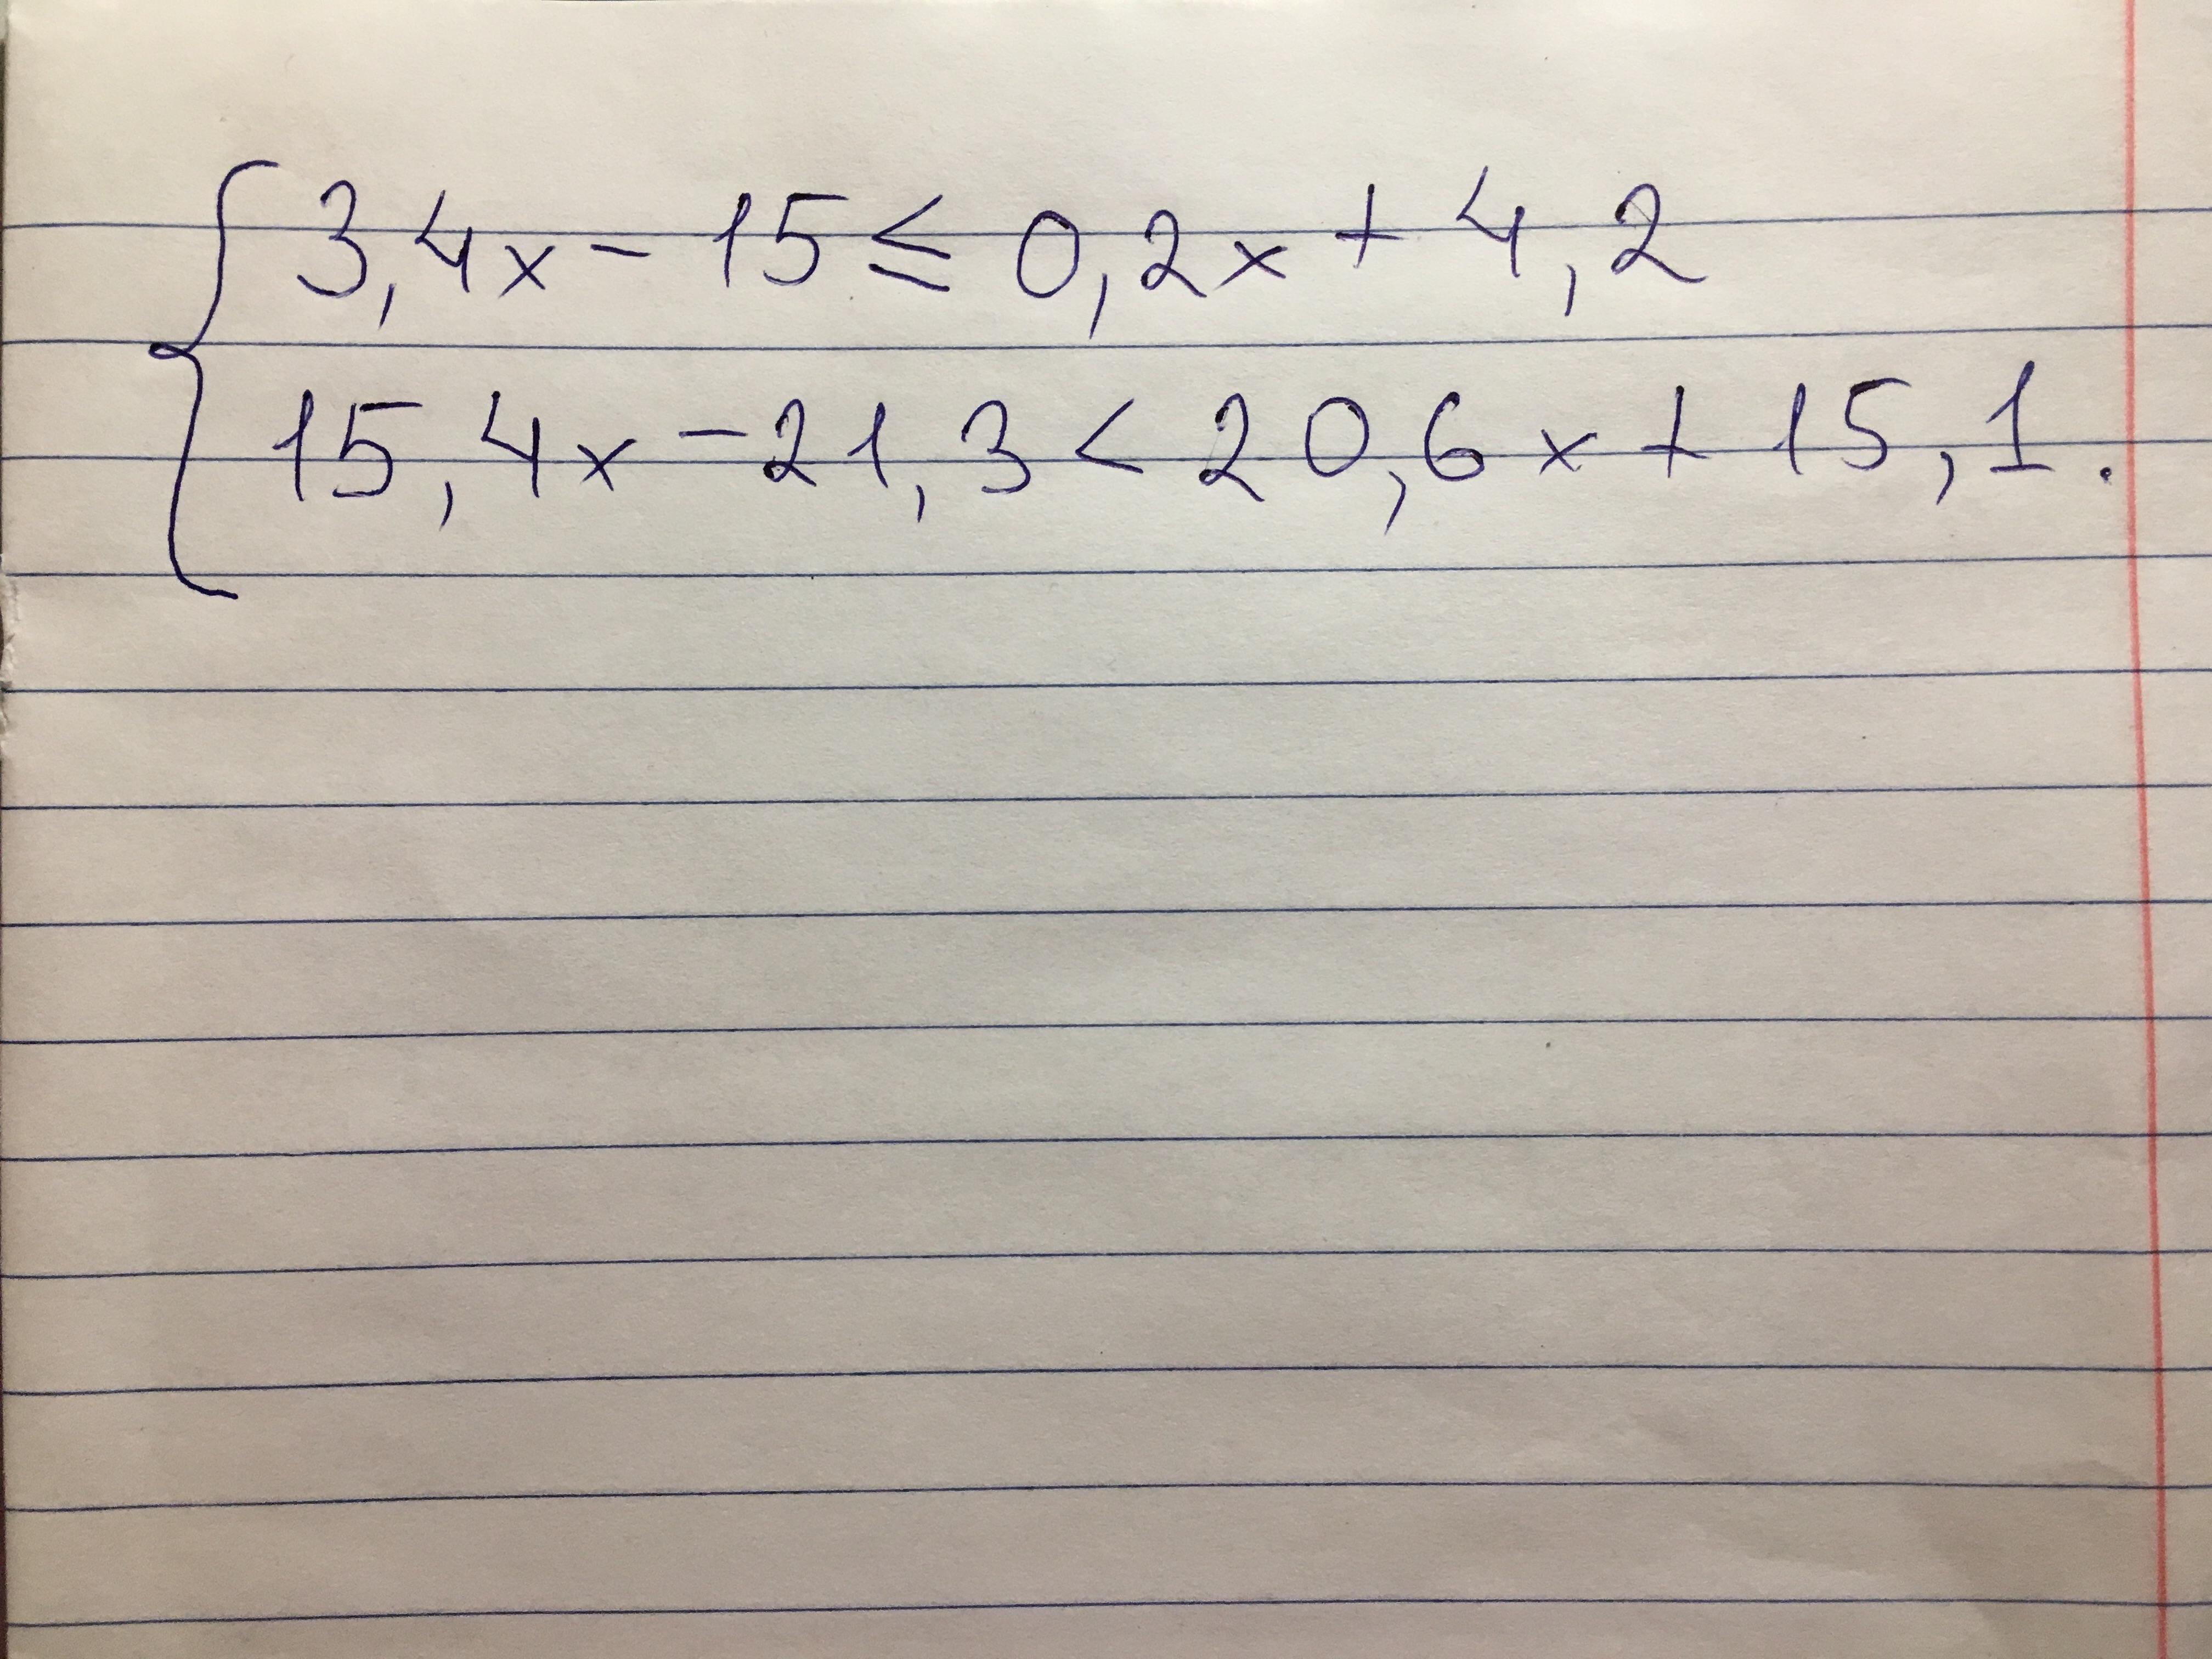 3,4x - 15 ≤ 0,2x + 4,2
15,4x - 21,3 < 20,6x + 15,1.